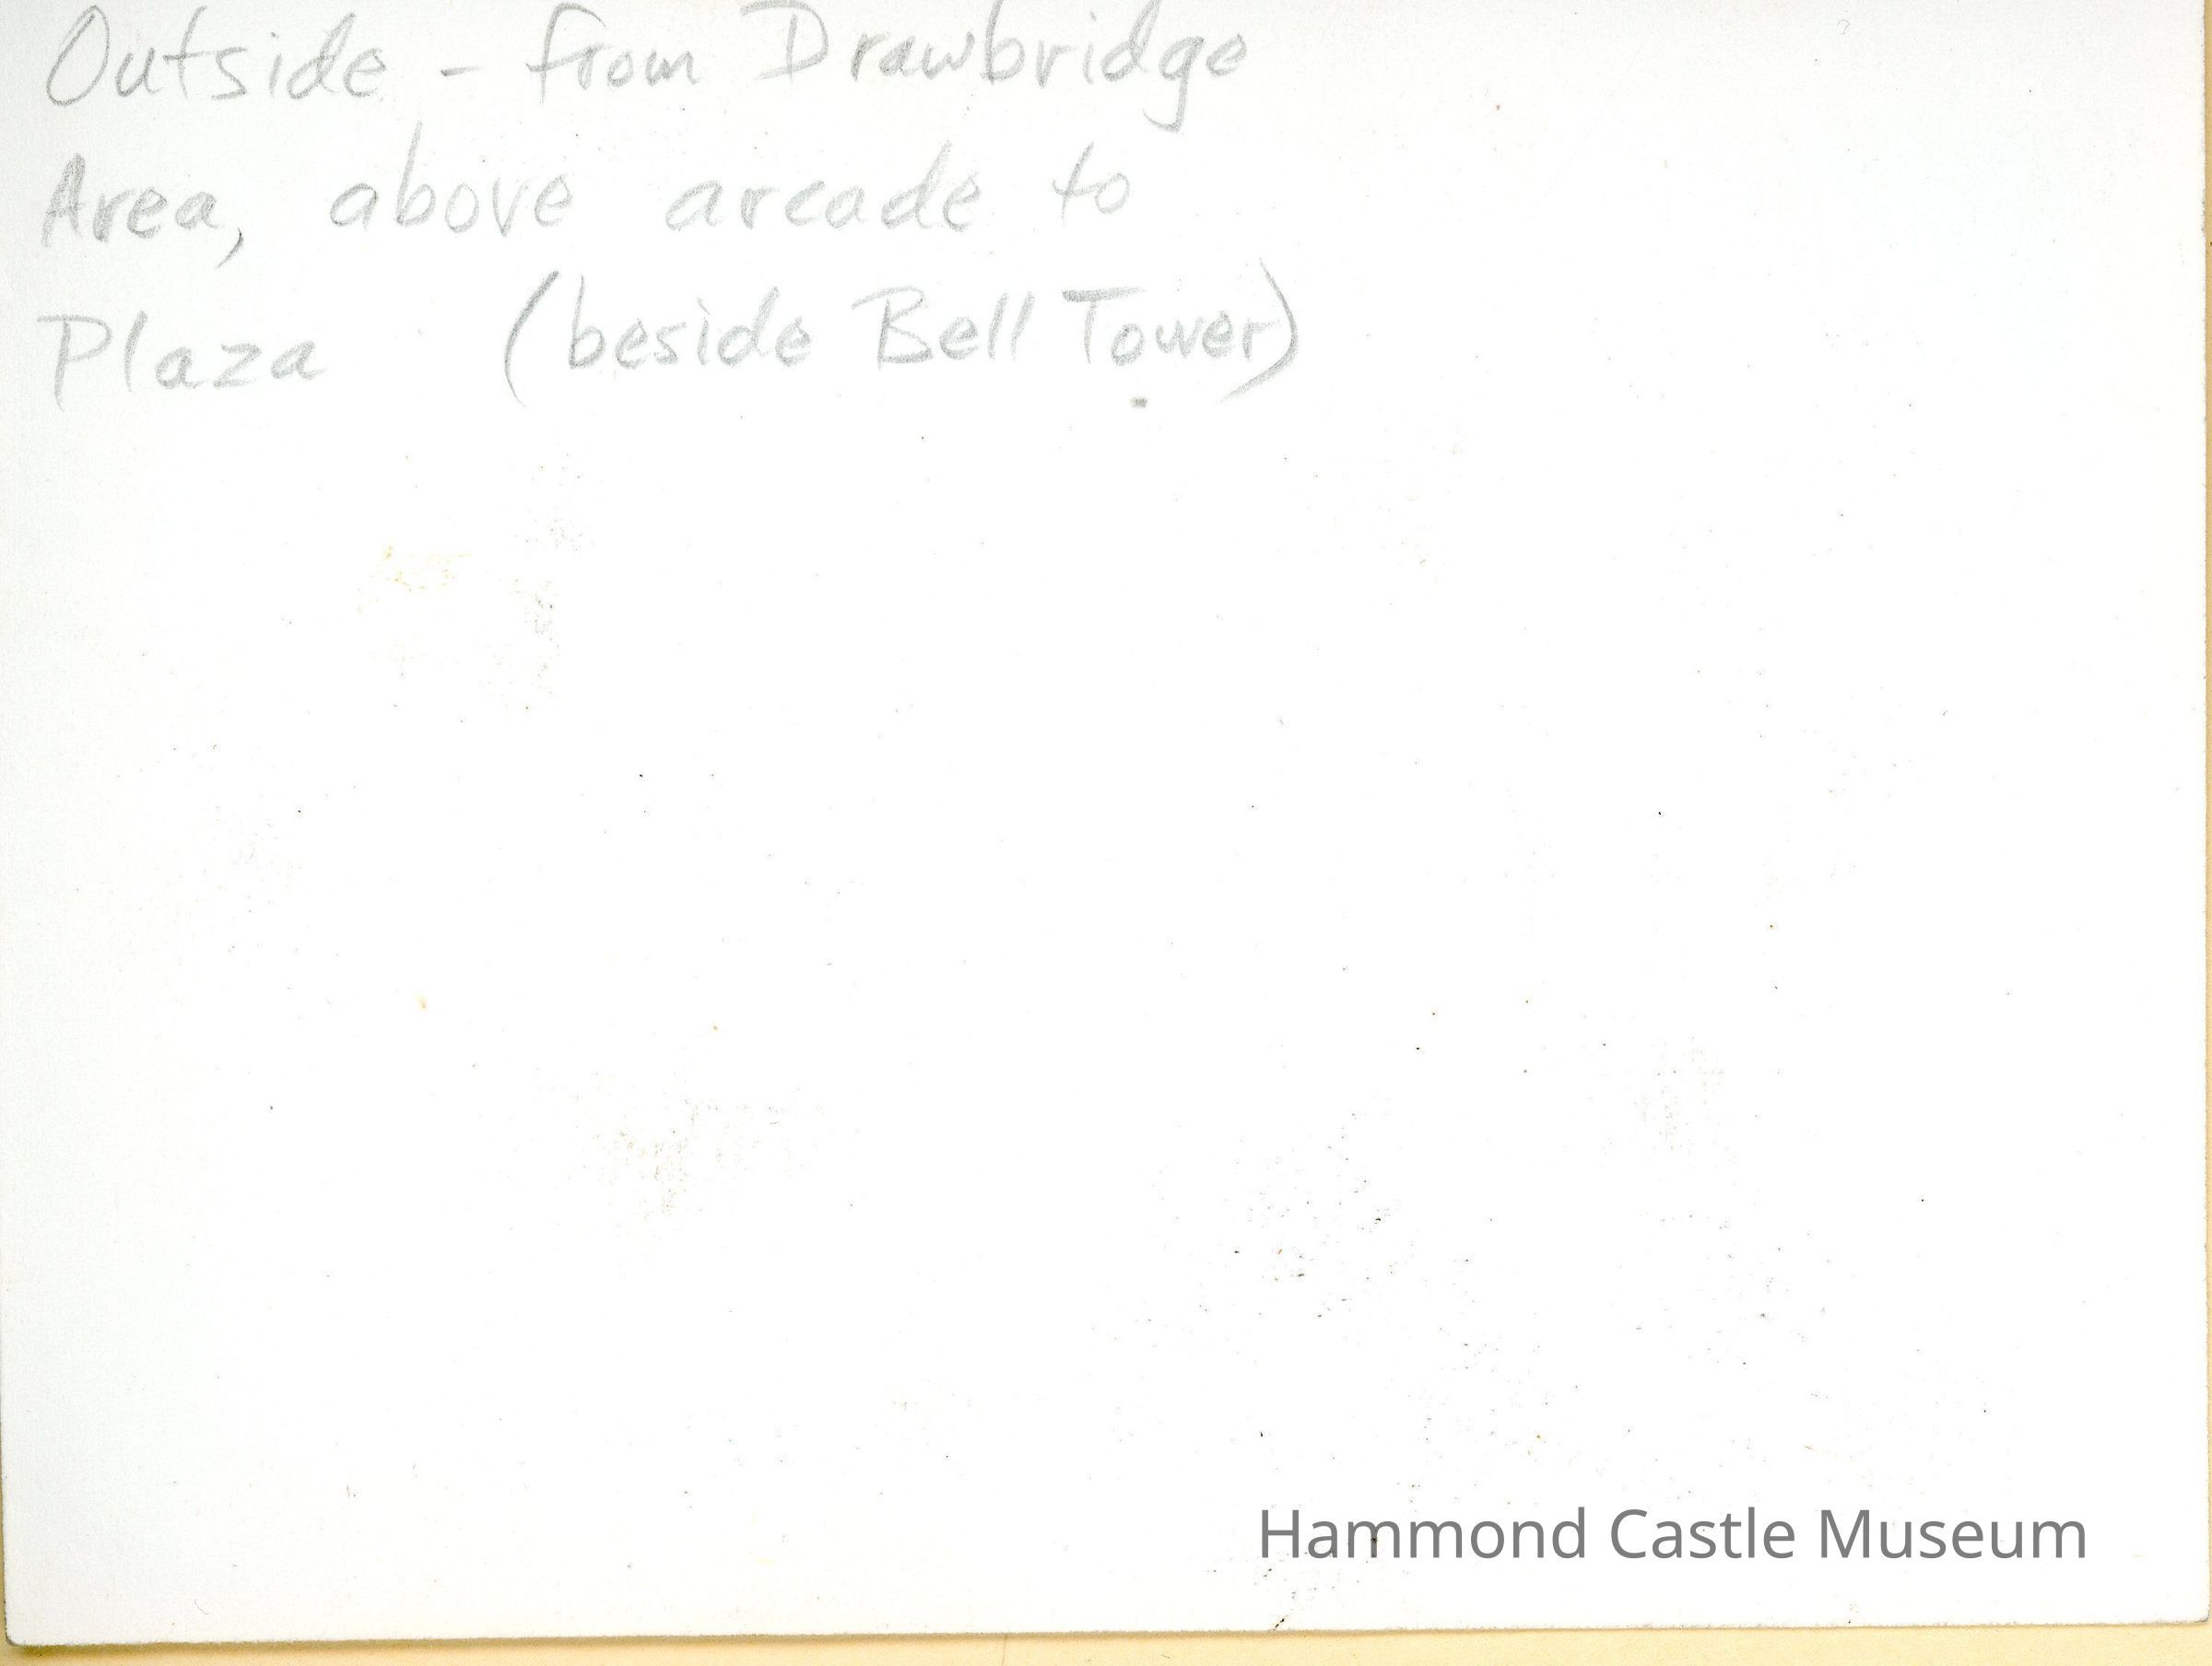 Outside - from Drawbridge
Area, above arcade to
Plaza (beside Bell Tower)
Hammond Castle Museum